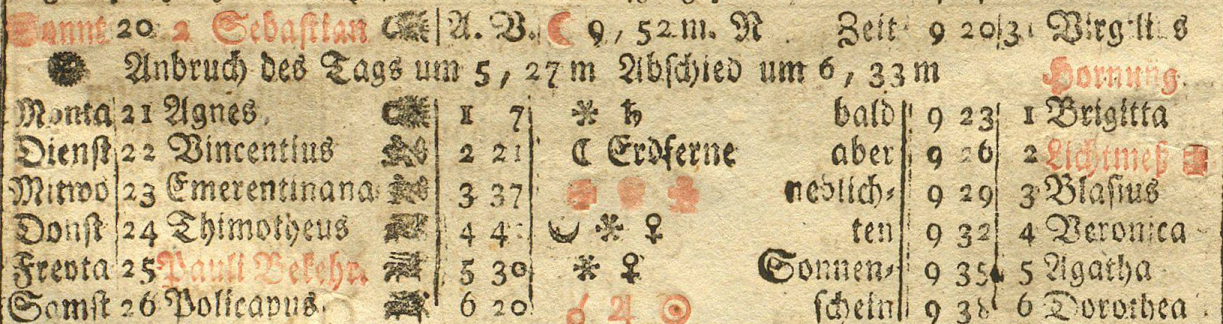 Sonnt 20 2 Sebastian A. V. ☾ 9, 52 m. N Zeit 9 20 31 Virgilius
Anbruch des Tags um 5, 27 m Abschied um 6, 33 m Hornung.
Monta 21 Agnes, 1 7 ✻ ♄ bald 9 23 1 Brigitta
Dienst 22 Vincentius 2 21 ☾ Erdferne aber 9 26 2 Lichtmeß
Mitwo 23 Emerentinana 3 37 neblich- 9 29 3 Blasius
Donst 24 Thimotheus 4 ✻ ♀ ten 9 32 4 Veronica
Freyta 25 Pauli Bekehr. 5 30 ✻ ♀ Sonnen- 9 35 5 Agatha
Samst 26 Policapus. 6 20 ☌ ♃ ☉ schein 9 38 6 Dorothea